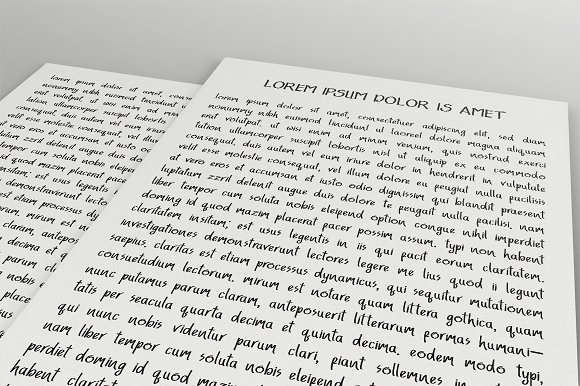 lorem ipsum dolor sit amet,
nonummy nibh euismod tincidunt
erat volutpat, ut wisi enim ad
tation ullamcorper suscipit lobortis
consequat, duis autem vel eum
velit esse molestie consequat, vel
at vero eros et accumsan et iusto
luptatum zzril delenit augue duis
liber tempor cum soluta nobis
id quod mazim placerat
insitam; est usus legentis in
demonstraverunt lectores
est etiam processus dynamicus,
mirum est notare
parum claram, anteposuerit
decima et quinta
parum clari,
LOREM IPSUM DOLOR IS AMET
lorem ipsum dolor sit amet, consectetuer adipiscing elit, sed diam
nonummy nibh euismod tincidunt ut laoreet dolore magna aliquam
erat volutpat, ut wisi enim ad minim veniam, quis nostrud exerci
tation ullamcorper suscipit lobortis nisl ut aliquip ex ea commodo
consequat, duis autem vel eum iriure dolor in hendrerit in vulputate
velit esse molestie consequat, vel illum dolore eu feugiat nulla pacilisis
at vero eros et accumsan et iusto odio dignissim qui blandit praesent
luptatum zzril delenit augue duis dolore te feugait nulla pacilisi. nam
liber tempor cum soluta nobis eleipend option congue nihil imperdiet
doming id quod mazim placerat pacer possim assum. typi non habent
claritatem insitam; est usus legentis in iis qui pacit eorum claritatem.
investigationes demonstraverunt lectores legere me lius quod ii legunt
saepius. claritas est etiam processus dynamicus, qui sequitur mutationem
consuetudium lectorum. mirum est notare quam littera gothica, quam
nunc putamus parum claram, anteposuerit litterarum formas humani—
tatis per seacula quarta decima et quinta decima. eodem modo typi,
qui nunc nobis videntur parum clari, piant sollemnes in
nam liber tempor cum soluta nobis eleipend
perdiet doming id quod mazim
habent claritatem